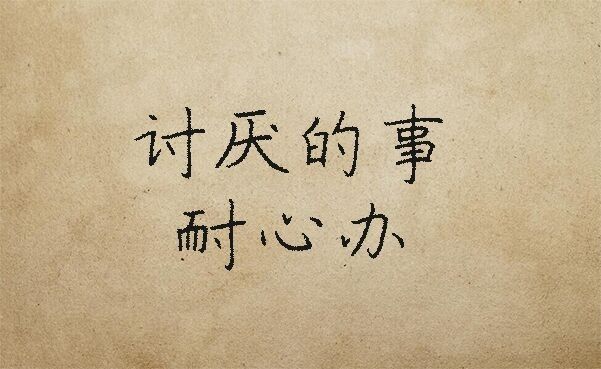 讨厌的事
耐心办